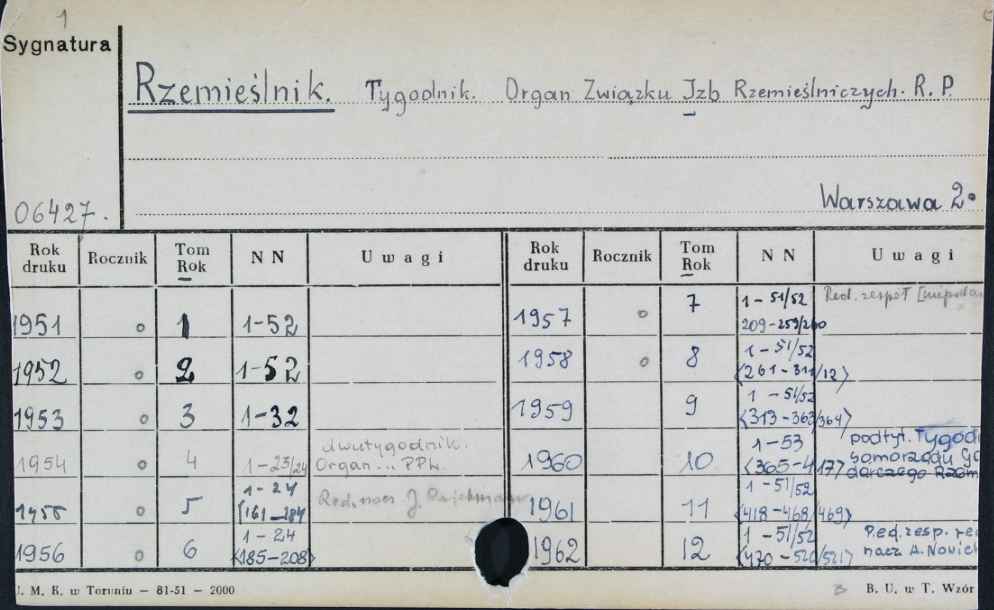 1
Sygnatura
Rzemieślnik. Tygodnik. Organ Związku Izb Rzemieślniczych. R. P.
06427.
Warszawa 2.
Rok druku Rocznik Tom Rok NN Uwagi Rok druku Rocznik Tom Rok NN Uwagi
1951 o 1 1-52 1957 o 7 1-51/52 209-259/260 Red. zespół
1952 o 2 1-52 1958 o 8 1-51/52 <261-311/12>
1953 o 3 1-32 1959 9 1-51/52 <313-363/364>
1954 o 4 1-23/24 dwutygodnik. Organ... 1960 10 1-53 <365-417> podtyt. Tygod samorządu Go darczego Rzem
1955 5 1-24 <161-184 Red. nacz J. 1961 11 1-51/52 <418-468/469>
1956 o 6 1-24 <185-208> 1962 12 1-51/52 <470-520/521> nacz A.
U. M. K. w Toruniu — 81-51 — 2000 B. U. w T. Wzór